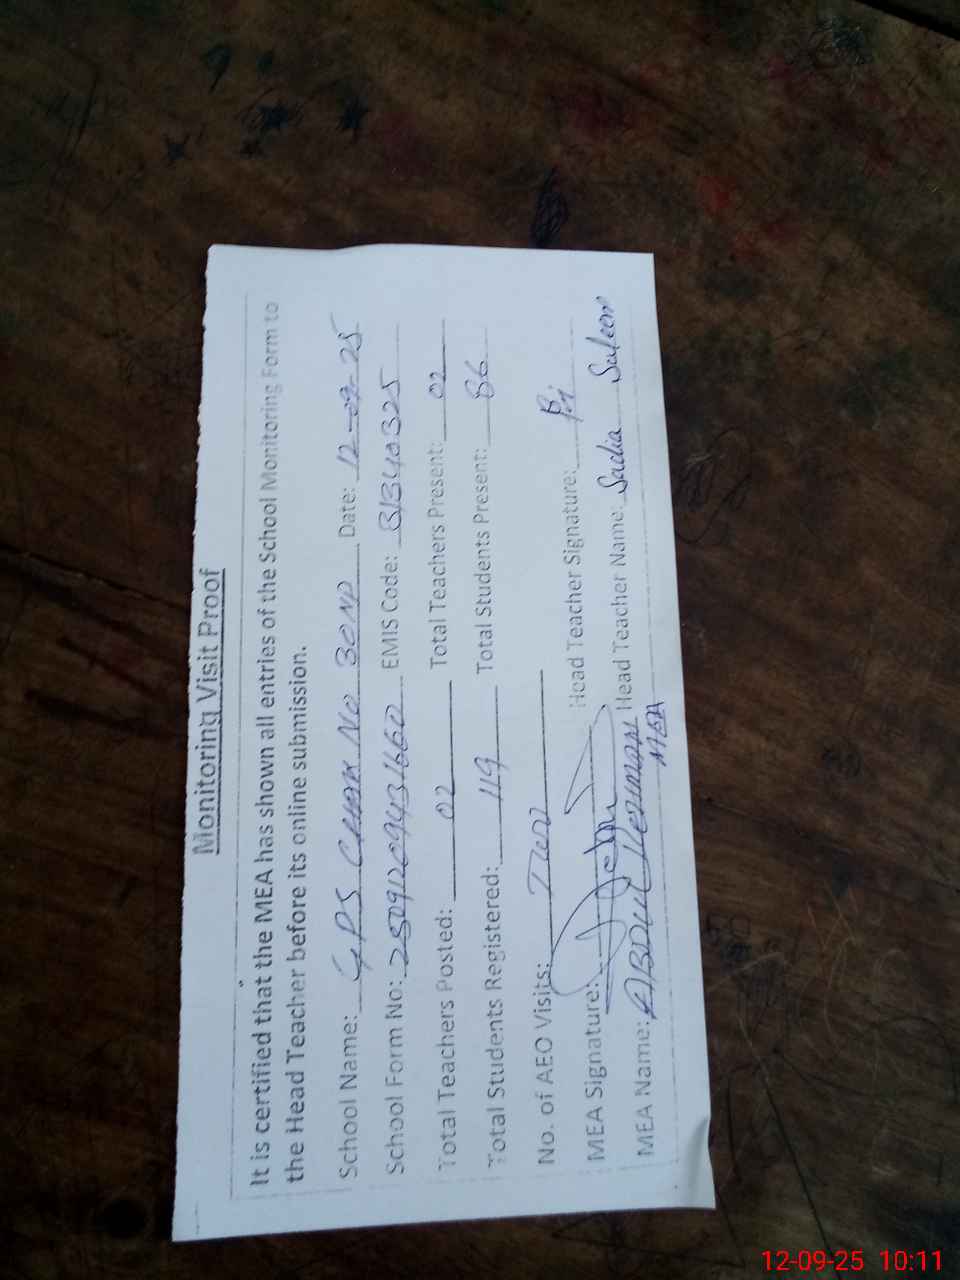 Monitoring Visit Proof
It is certified that the MEA has shown all entries of the School Monitoring Form to
the Head Teacher before its online submission.
School Name: GPS CHAK No 30NP Date: 12-09-25
School Form No: 250912094231660 EMIS Code: 31340325
Total Teachers Posted: 02 Total Teachers Present: 02
Total Students Registered: 119 Total Students Present: 86
No. of AEO Visits: Zero
MEA Signature: Head Teacher Signature:
MEA Name: ABDUL REHMAN Head Teacher Name: Sadia Saleem
MEA
12-09-25 10:11